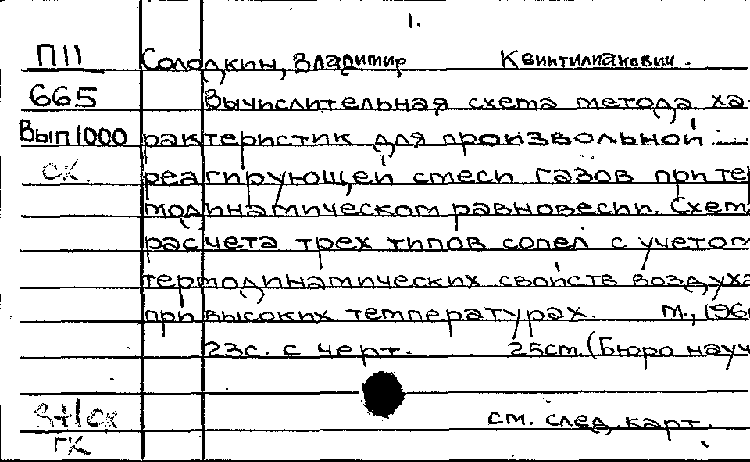 1.
П11 Солодкин, Владимир Квинтилианович.
665 Вычислительная схема метода ха-
Вып1000 рактеристик для произвольной
СК. реагирующей смеси газов при тер
модинамическом равновесии. Схема
расчета трех типов сопел с учетом
термодинамических свойств воздуха
при высоких температурах. М., 196
23с. с черт. 25см. (Бюро науч
см. след. карт.
ГК